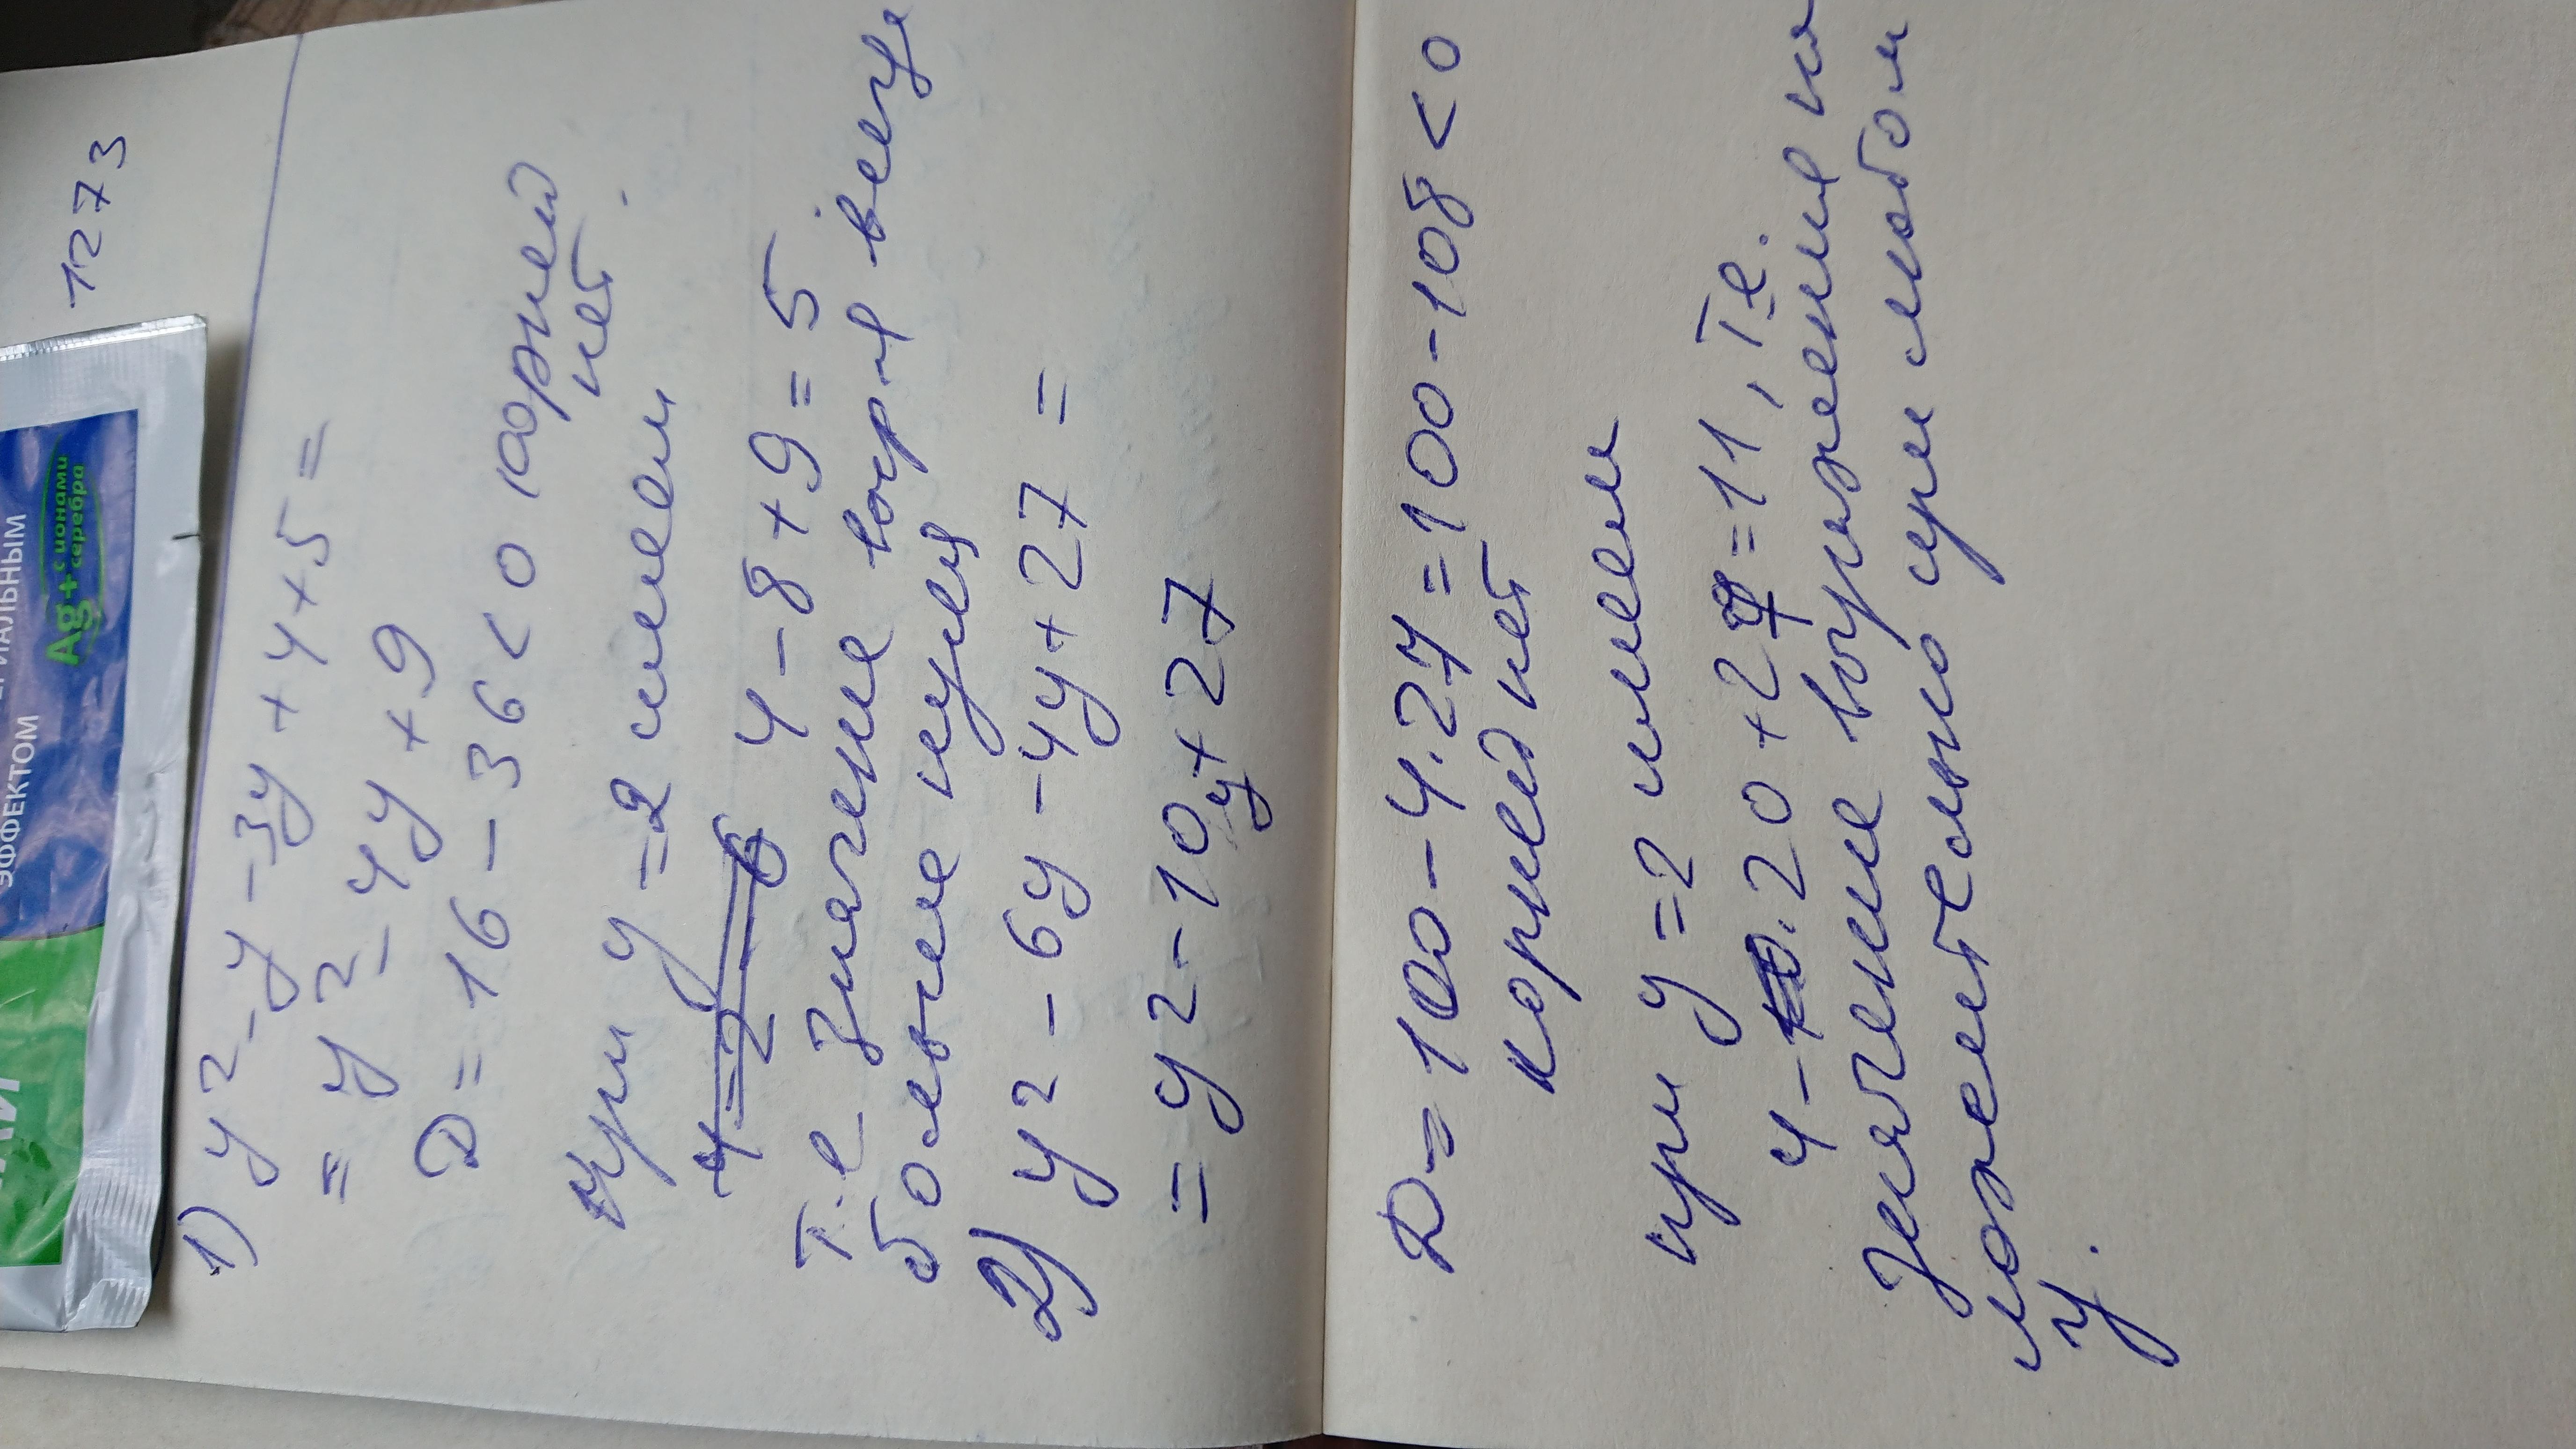 1273
ЭФФЕКТОМ
АЛЬНЫМ
Ag+ с ионами
серебра
1) y2 - y - 3y + 4 + 5 =
= y2 - 4y + 9
D = 16 - 36 < 0 корней
нет.
при y = 2 имеем
4 - 8 + 9 = 5.
т.е значение выр-я всегда
больше нуля
2) y2 - 6y - 4y + 27 =
= y2 - 10y + 27
D = 100 - 4.27 = 100 - 108 < 0
корней нет
при y = 2 имеем
4 - 20 + 27 = 11, те.
значение выражение по
ложительно при любом
y.